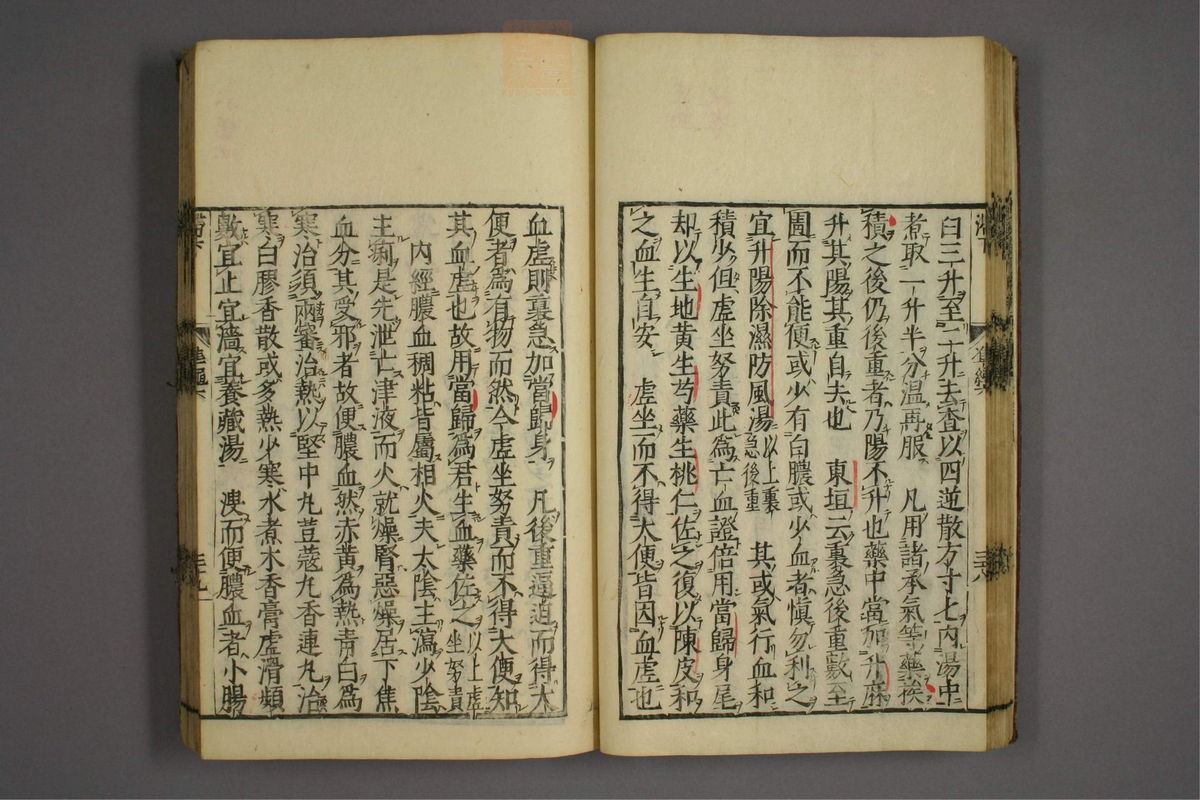 臼三升至一十升去査以四逆散方寸七内湯中
煮取一升半分温再服　凡用諸承氣等藥挨
積之後仍後重者乃陽不升也藥中當加升麻
升其陽其重自夫也　東垣云裏急後重數至
圊而不能便或少有白膿或少血者愼勿利之
宜升陽除濕防風湯以上裏急後重　其或氣行血和
積少但虚坐努責此為亡血證倍用當歸身尾
却以生地黄生芍藥生桃仁佐之復以陳皮和
之血生自安　虚坐而不得大便皆因血虚也
血虚則裏急加當歸身　凡後重逼迫而得大
便者為有物而然今虚坐努責而不得大便知
其血虚也故用當歸為君生血藥佐之以上虚坐努責
内經膿血稠粘皆屬相火夫太陰主瀉少陰
主痢是先泄亡津液而火就燥腎惡燥居下焦
血分其受邪者故便膿血然赤黄為熱青白為
寒治須兩審治熱以堅中丸荳蔲丸香連丸治
寒白膠香散或多熱少寒水煮木香膏虚滑頻
數宜止宜濇宜養藏湯　溲而便膿血者小腸